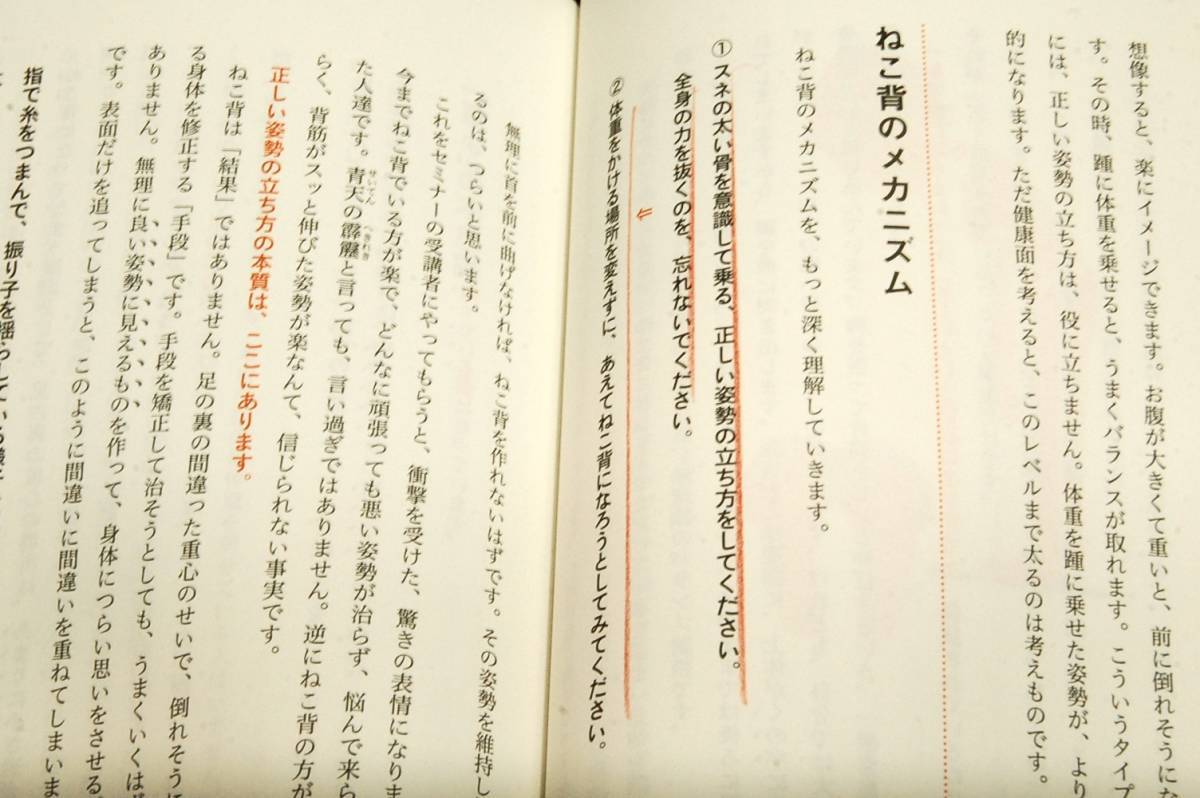 想像すると、楽にイメージできます。お腹が大きくて重いと、前に倒れそうにな
す。その時、踵に体重を乗せると、うまくバランスが取れます。こういうタイプ
には、正しい姿勢の立ち方は、役に立ちません。体重を踵に乗せた姿勢が、より
的になります。ただ健康面を考えると、このレベルまで太るのは考えものです。
ねこ背のメカニズム
ねこ背のメカニズムを、もっと深く理解していきます。
①スネの太い骨を意識して乗る、正しい姿勢の立ち方をしてください。
全身の力を抜くのを、忘れないでください。
⇐
②体重をかける場所を変えずに、あえてねこ背になろうとしてみてください。
無理に首を前に曲げなければ、ねこ背を作れないはずです。その姿勢を維持し
るのは、つらいと思います。
これをセミナーの受講者にやってもらうと、衝撃を受けた、驚きの表情になりま
今までねこ背でいる方が楽で、どんなに頑張っても悪い姿勢が治らず、悩んで来ら
た人達です。青天の霹靂と言っても、言い過ぎではありません。逆にねこ背の方が
せいてん へきれき
らく、背筋がスッと伸びた姿勢が楽なんて、信じられない事実です。
正しい姿勢の立ち方の本質は、ここにあります。
ねこ背は「結果」ではありません。足の裏の間違った重心のせいで、倒れそうに
る身体を修正する「手段」です。手段を矯正して治そうとしても、うまくいくはず
ありません。無理に良い姿勢に見えるものを作って、身体につらい思いをさせる
です。表面だけを追ってしまうと、このように間違いに間違いを重ねてしまいま
指で糸をつまんで、振り子を揺らしている様